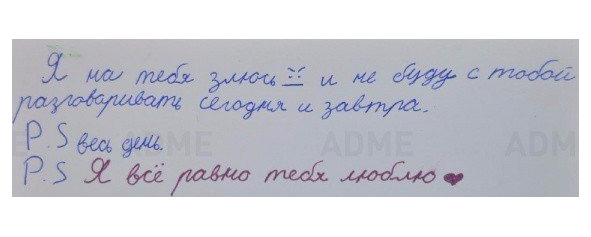 Я на тебя злюсь и не буду с тобой
разговаривать сегодня и завтра.
P.S весь день.
P.S Я всё равно тебя люблю ❤
ADME
ADME
ADM